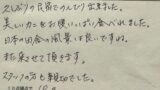 久しぶりの民宿でのんびり出来ました。
美しいカニをお腹いっぱい食べれました。
日本の田舎の風景は良いですね。
また来させて頂きます。
スタッフの方も親切でした。